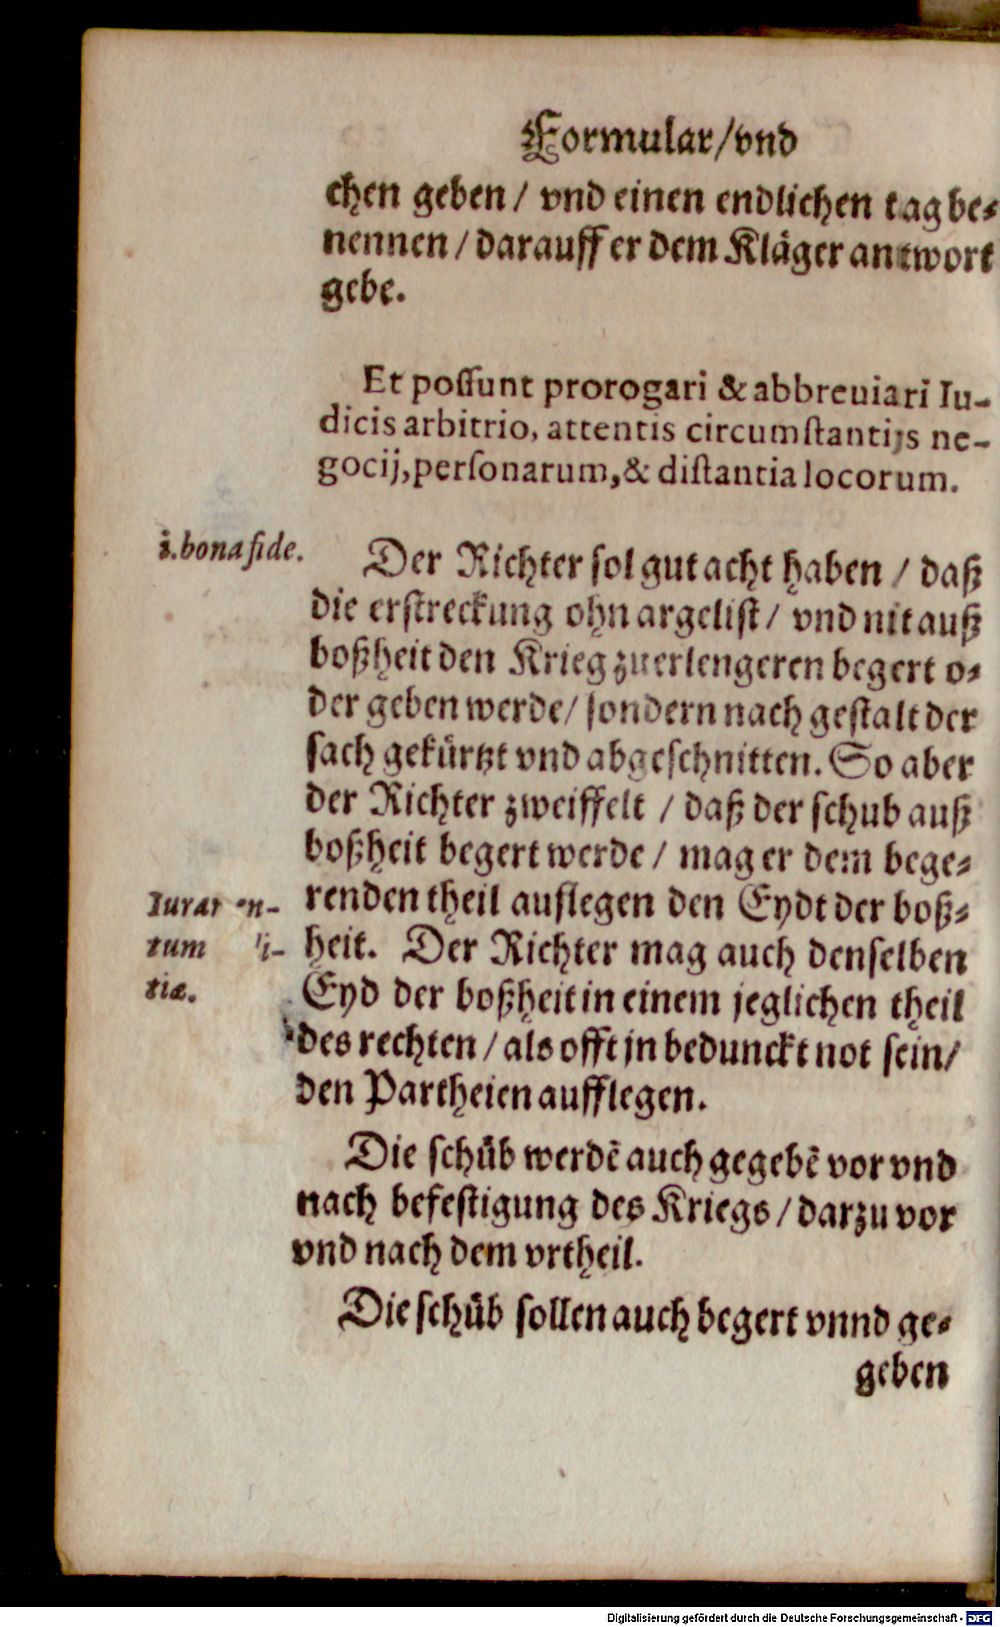 Formular/vnd
chen geben / vnd einen endlichen tag be-
nennen / darauff er dem Kläger antwort
gebe.
Et possunt prorogari & abbreuiari Iu-
dicis arbitrio, attentis circumstantijs ne-
gocij, personarum, & distantia locorum.
i. bona fide.
Der Richter sol gut acht haben / daß
die erstreckung ohn argelist / vnd nit auß
boßheit den Krieg zuerlengeren begert o-
der geben werde / sondern nach gestalt der
sach gekürtzt vnd abgeschnitten. So aber
der Richter zweiffelt / daß der schub auß
boßheit begert werde / mag er dem bege-
renden theil auflegen den Eydt der boß-
heit. Der Richter mag auch denselben
Eyd der boßheit in einem jeglichen theil
des rechten / als offt jn bedunckt not sein /
den Partheien aufflegen.
Iuramen-
tum li-
tiæ.
Die schüb werdē auch gegebē vor vnd
nach befestigung des Kriegs / darzu vor
vnd nach dem vrtheil.
Die schüb sollen auch begert vnnd ge-
geben
Digitalisierung gefördert durch die Deutsche Forschungsgemeinschaft - DFG